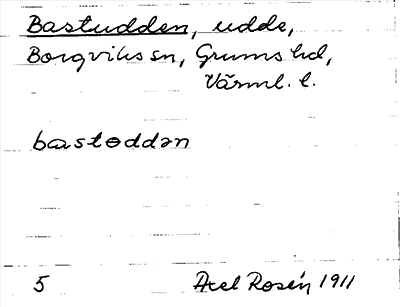 Bastudden, udde,
Borgviks sn, Grums hd,
Värml. l.
bastɵddən
5 Axel Rosén 1911